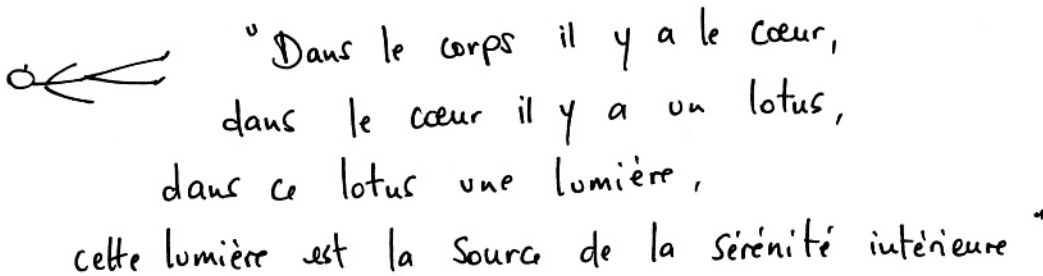 "Dans le corps il y a le cœur,
dans le cœur il y a un lotus,
dans ce lotus une lumière,
cette lumière est la Source de la sérénité intérieure"